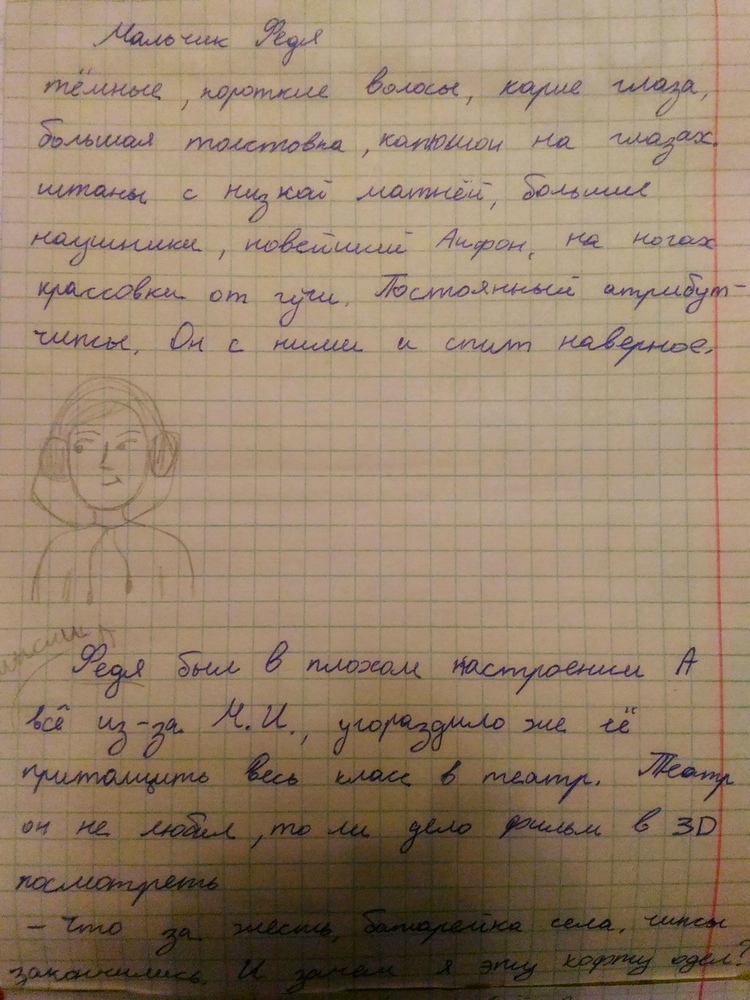 Мальчик Федя
тёмные, короткие волосы, карие глаза,
большая толстовка, капюшон на глазах.
штаны с низкой матнёй, большие
наушники, новейший Айфон, на ногах
крассовки от гучи. Постоянный атрибут-
чипсы. Он с ними и спит наверное.
Федя был в плохом настроении А
всё из-за М.И., угораздило же её
притащить весь класс в театр. Театр
он не любил, то ли дело фильм в 3D
посмотреть
- Что за жесть, батарейка села, чипсы
закончились. И зачем я эту кофту одел?